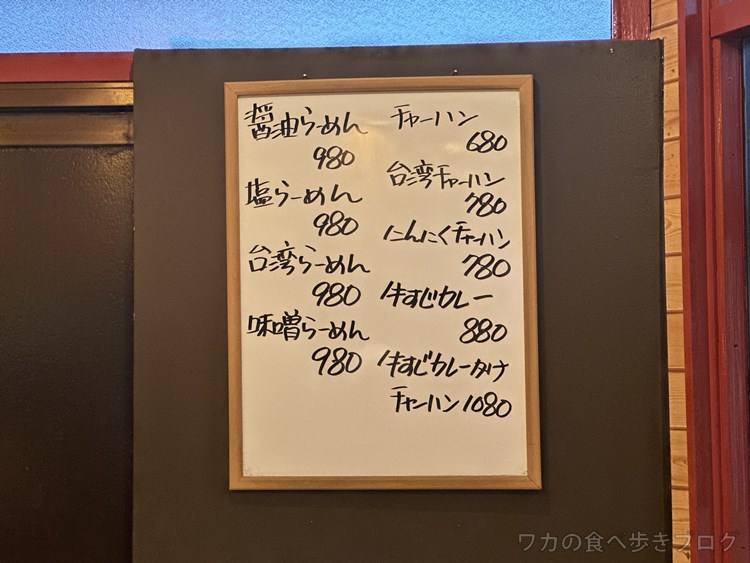 醤油らーめん
980
塩らーめん
980
台湾らーめん
980
味噌らーめん
980
チャーハン
680
台湾チャーハン
780
にんにくチャーハン
780
牛すじカレー
880
牛すじカレーかけ
チャーハン 1080
ワカの食べ歩きブログ